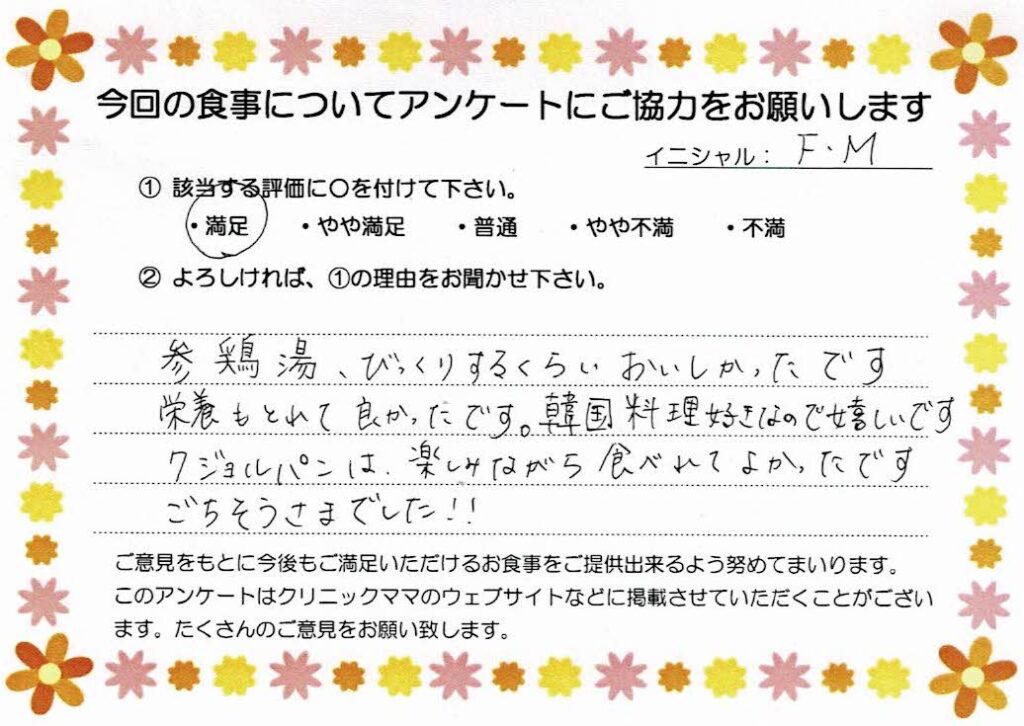 今回の食事についてアンケートにご協力をお願いします
イニシャル： F.M
① 該当する評価に〇を付けて下さい。
・満足 ・やや満足 ・普通 ・やや不満 ・不満
② よろしければ、①の理由をお聞かせ下さい。
参鶏湯、びっくりするくらいおいしかったです
栄養もとれて良かったです。韓国料理好きなので嬉しいです
クジョルパンは、楽しみながら食べれてよかったです
ごちそうさまでした!!
ご意見をもとに今後もご満足いただけるお食事をご提供出来るよう努めてまいります。
このアンケートはクリニックママのウェブサイトなどに掲載させていただくことがござい
ます。たくさんのご意見をお願い致します。